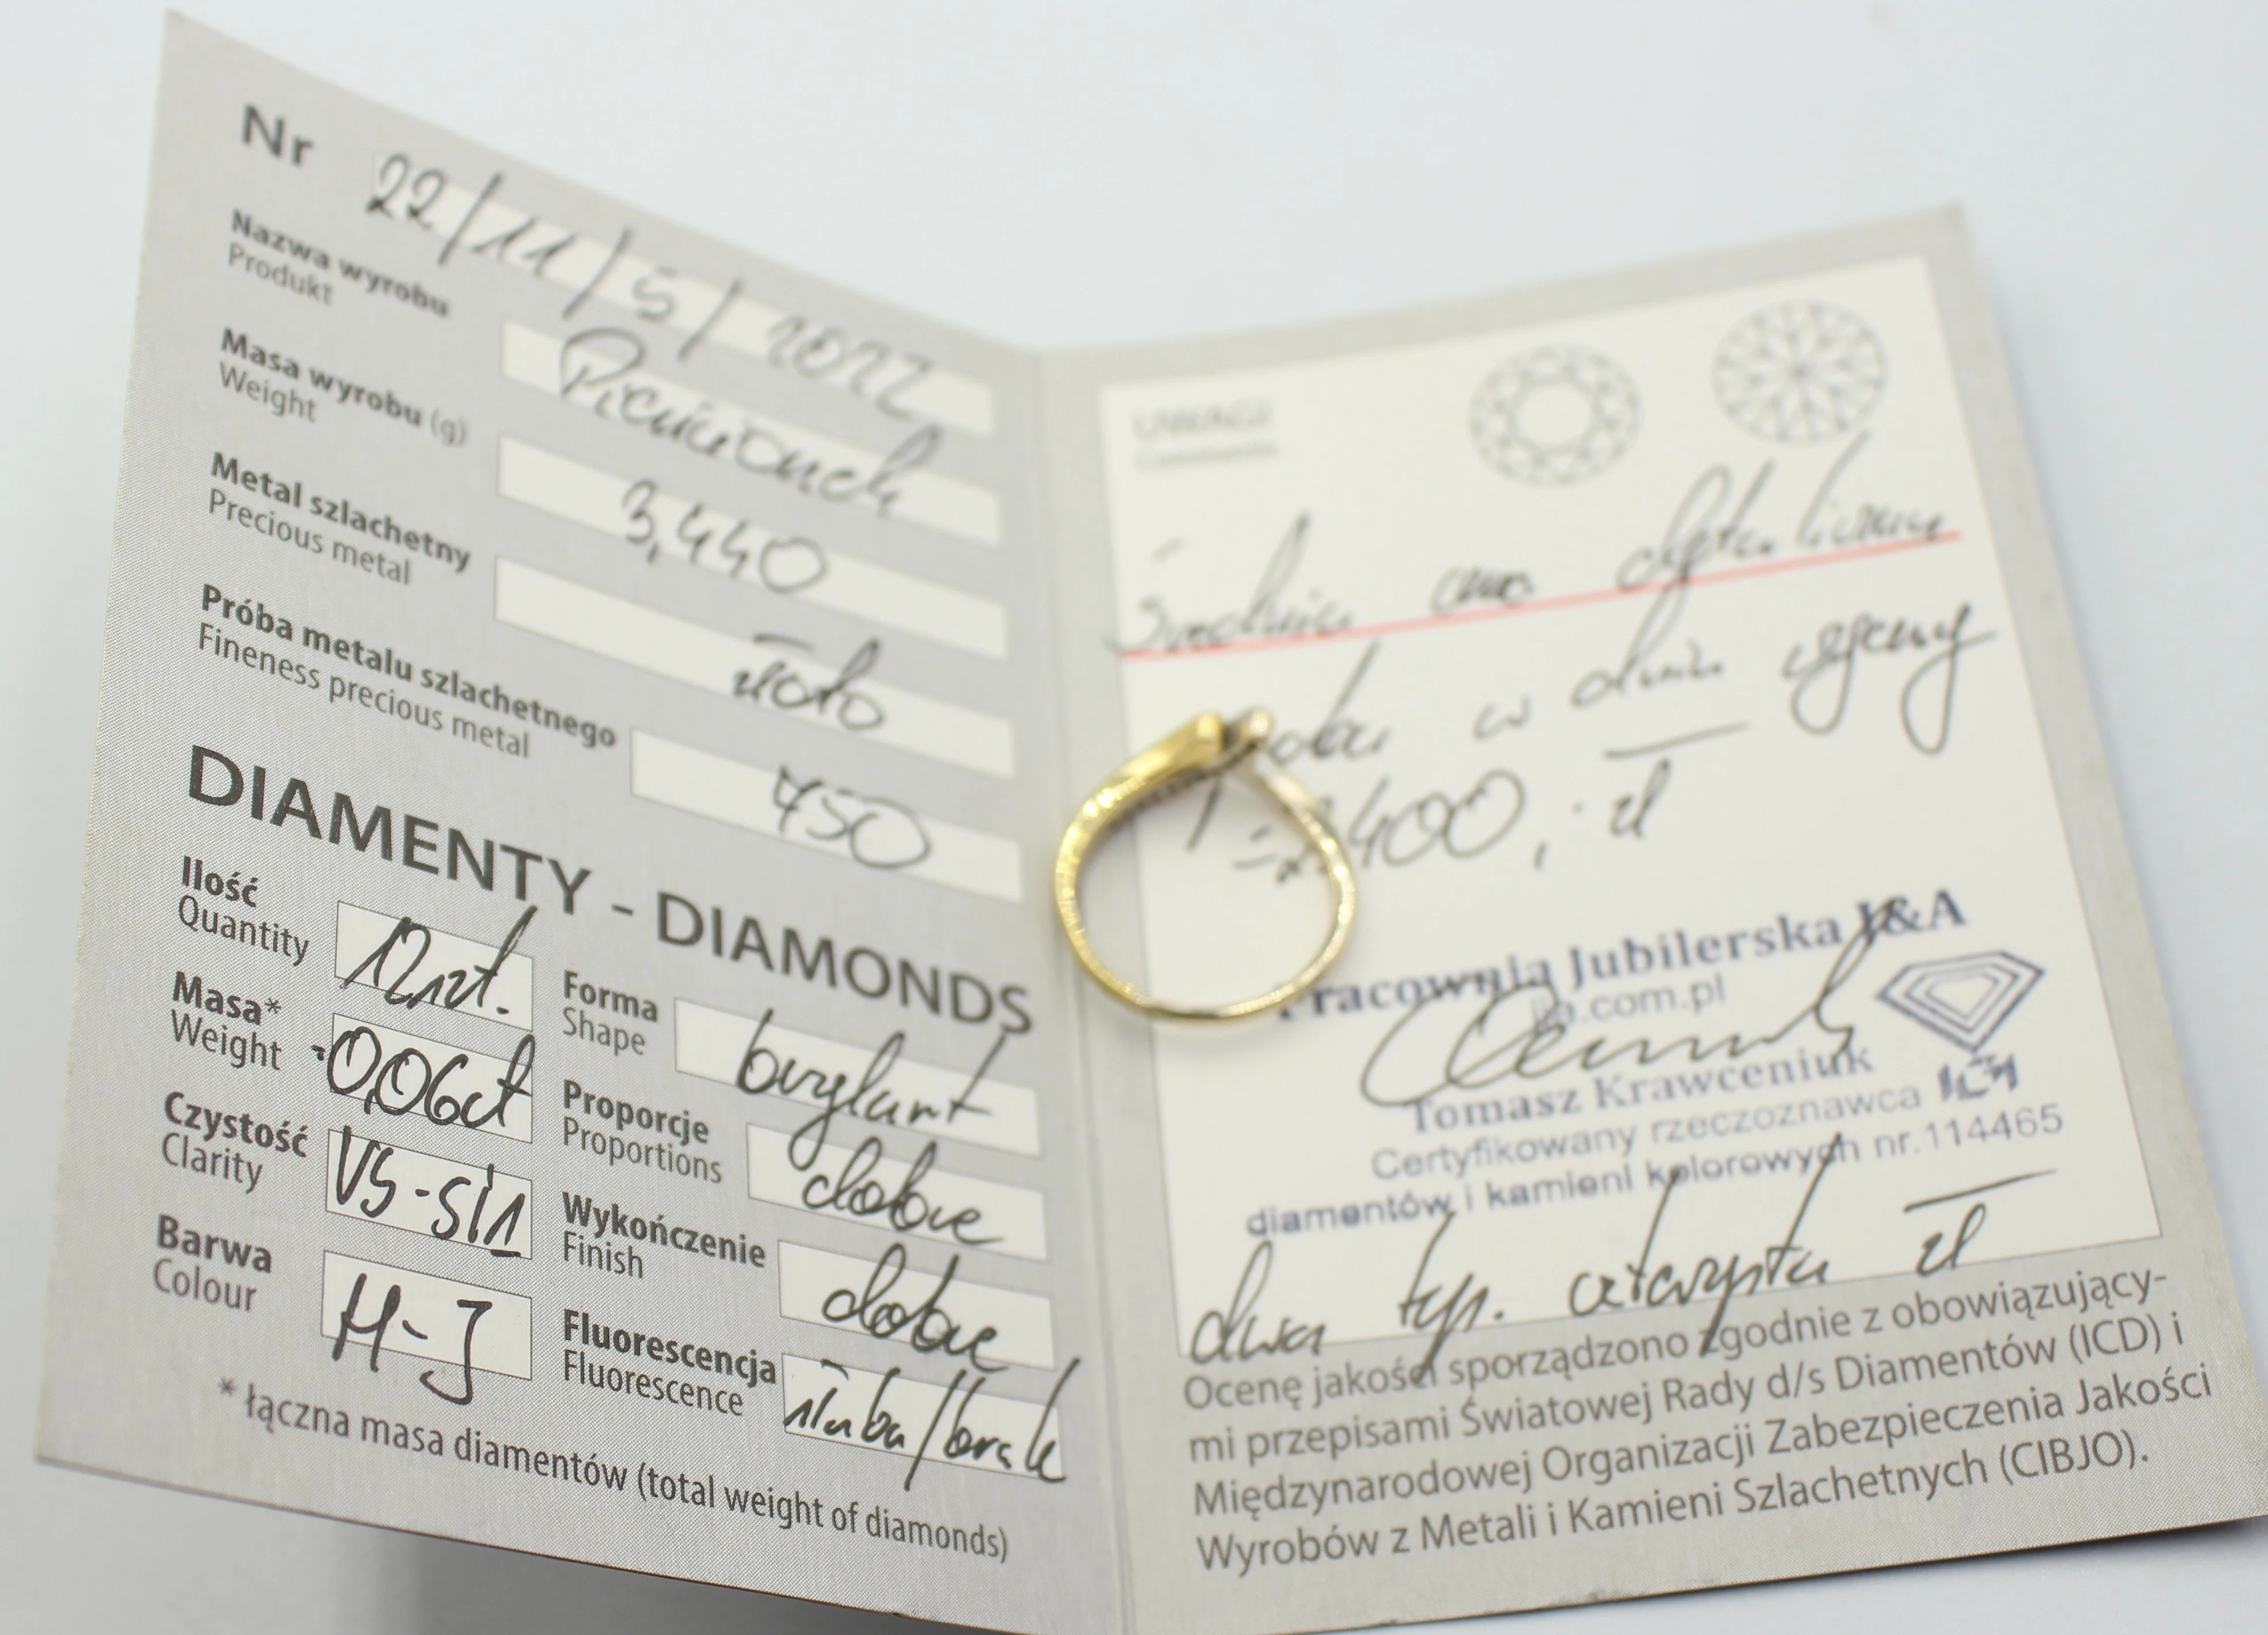 Nr 22/11/5/2022
Nazwa wyrobu Pierścionek
Produkt
Masa wyrobu (g) 3,440
Weight
Metal szlachetny złoto
Precious metal
Próba metalu szlachetnego 750
Fineness precious metal
DIAMENTY - DIAMONDS
Ilość 12szt.
Quantity
Masa* ~0,06ct
Weight
Czystość VS-Si1
Clarity
Barwa H-J
Colour
Forma brylant
Shape
Proporcje dobre
Proportions
Wykończenie dobre
Finish
Fluorescencja słaba/brak
Fluorescence
* łączna masa diamentów (total weight of diamonds)
UWAGI
Comments
Średnia cena detaliczna
w dniu wyceny
2400,- zł
Pracownia Jubilerska I&A
.com.pl
Tomasz Krawceniuk
Certyfikowany rzeczoznawca
diamentów i kamieni kolorowych nr.114465
dwa tys. czterysta zł
Ocenę jakości sporządzono zgodnie z obowiązujący-
mi przepisami Światowej Rady d/s Diamentów (ICD) i
Międzynarodowej Organizacji Zabezpieczenia Jakości
Wyrobów z Metali i Kamieni Szlachetnych (CIBJO).